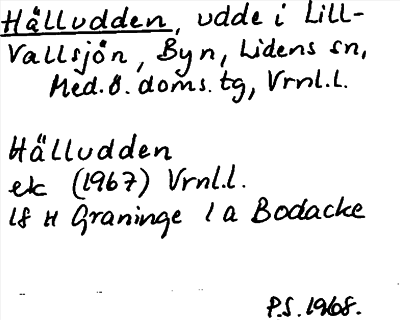 Hälludden, udde i Lill-
Vallsjön, Byn, Lidens sn,
Med.Ö.doms.tg, Vrnl.l.
Hälludden
ek (1967) Vrnl.l.
18 H Graninge 1 a Bodacke
P.S. 1968.